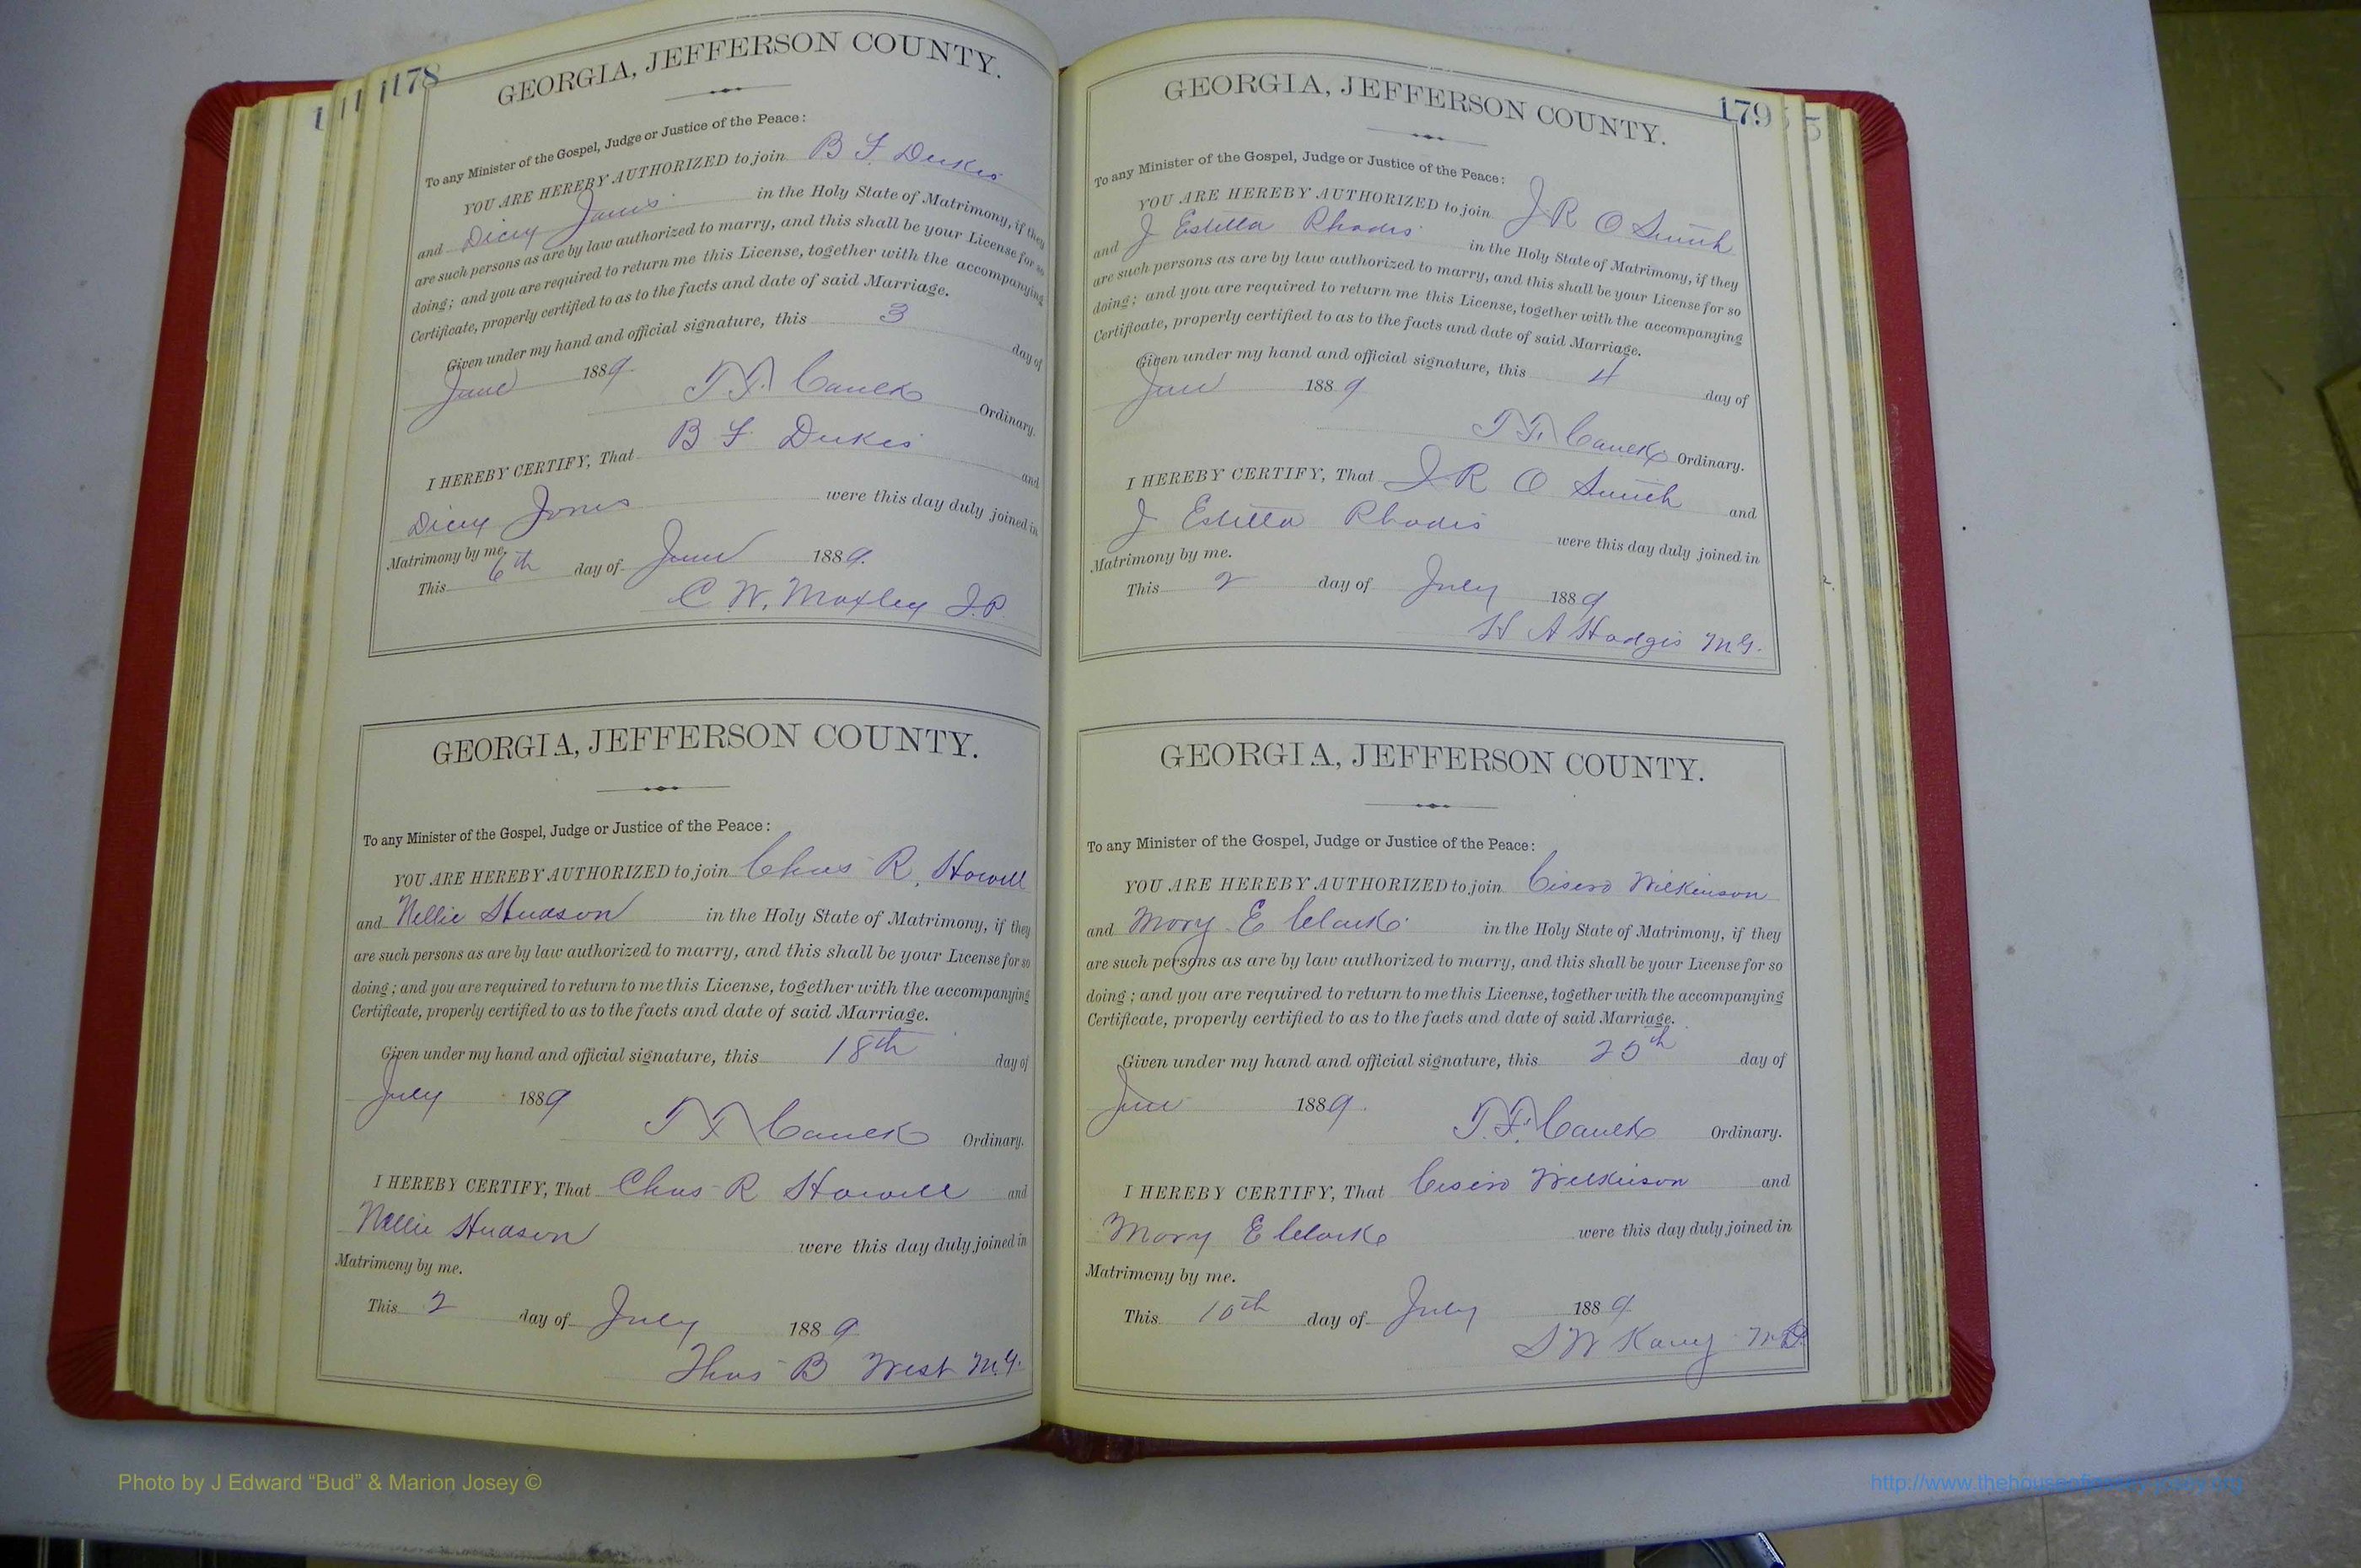 178
GEORGIA, JEFFERSON COUNTY.
To any Minister of the Gospel, Judge or Justice of the Peace:
YOU ARE HEREBY AUTHORIZED to join B F Dukes
and Dicey Jones in the Holy State of Matrimony, if they
are such persons as are by law authorized to marry, and this shall be your License for so
doing; and you are required to return me this License, together with the accompanying
Certificate, properly certified to as to the facts and date of said Marriage.
Given under my hand and official signature, this 3 day of
June 1889. T. F. Caulk Ordinary.
I HEREBY CERTIFY, That B F Dukes and
Dicey Jones were this day duly joined in
Matrimony by me.
This 6th day of June 1889.
C. W. Moxley J.P.
GEORGIA, JEFFERSON COUNTY.
To any Minister of the Gospel, Judge or Justice of the Peace:
YOU ARE HEREBY AUTHORIZED to join Chas R. Howell
and Nellie Hudson in the Holy State of Matrimony, if they
are such persons as are by law authorized to marry, and this shall be your License for so
doing; and you are required to return to me this License, together with the accompanying
Certificate, properly certified to as to the facts and date of said Marriage.
Given under my hand and official signature, this 18th day of
July 1889
T F Caulk Ordinary.
I HEREBY CERTIFY, That Chas R Howell and
Nellie Hudson were this day duly joined in
Matrimony by me.
This 2 day of July 1889
Thos B West M.G.
179
GEORGIA, JEFFERSON COUNTY.
To any Minister of the Gospel, Judge or Justice of the Peace:
YOU ARE HEREBY AUTHORIZED to join J R O Smith
and J Estella Rhodes in the Holy State of Matrimony, if they
are such persons as are by law authorized to marry, and this shall be your License for so
doing; and you are required to return me this License, together with the accompanying
Certificate, properly certified to as to the facts and date of said Marriage.
Given under my hand and official signature, this 4 day of
June 1889
T. F. Caulk Ordinary.
I HEREBY CERTIFY, That J R O Smith and
J Estella Rhodes were this day duly joined in
Matrimony by me.
This 2 day of July 1889
H A Hodges M.G.
GEORGIA, JEFFERSON COUNTY.
To any Minister of the Gospel, Judge or Justice of the Peace:
YOU ARE HEREBY AUTHORIZED to join Cisero Wilkinson
and Mary E Clarke in the Holy State of Matrimony, if they
are such persons as are by law authorized to marry, and this shall be your License for so
doing; and you are required to return to me this License, together with the accompanying
Certificate, properly certified to as to the facts and date of said Marriage.
Given under my hand and official signature, this 20th day of
June 1889.
T. F. Caulk Ordinary.
I HEREBY CERTIFY, That Cisero Wilkinson and
Mary E Clarke were this day duly joined in
Matrimony by me.
This 10th day of July 1889
S W
Photo by J Edward “Bud” & Marion Josey ©